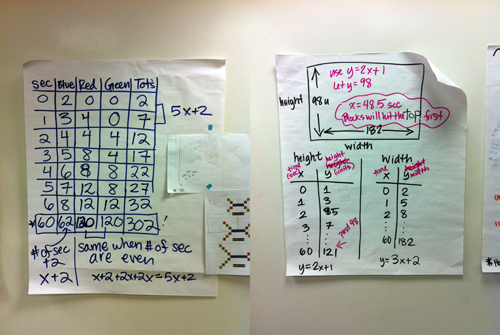 sec Blue Red Green Tot's
0 2 0 0 2
1 3 4 0 7
5x+2
2 4 4 4 12
3 5 8 4 17
4 6 8 8 22
5 7 12 8 27
6 8 12 12 32
*60 62 120 120 302 !
# of sec +2
same when # of sec are even
x+2
x+2+2x+2x=5x+2
use y=2x+1
u+y=98
height 98u
x=48.5 sec
Blocks will hit the top first
182
width
height
width
time (sec) x height y (units)
time x width y
0 1
1 3
2 5
3 7
60 121
past 98
0 2
1 5
2 8
60 182
y=2x+1
y=3x+2